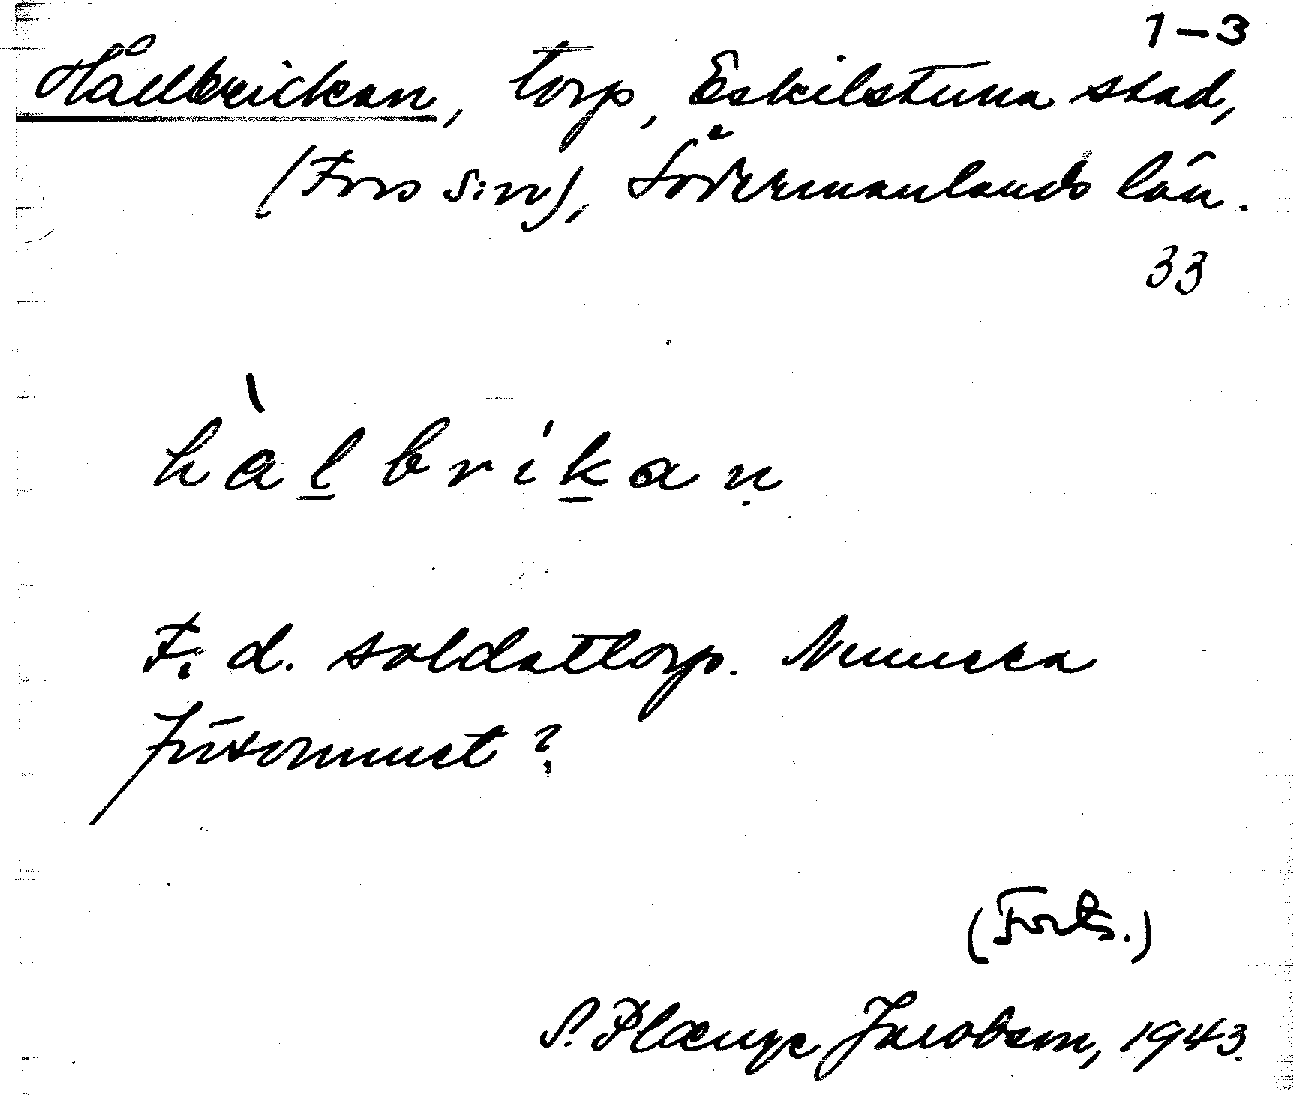 1-3
Hållbrickan, torp, Eskilstuna stad,
(Fors sn), Södermanlands län.
33
hàlbrikan
F. d. soldattorp. Numera
försvunnet?
(Forts.)
S. Plænge Jacobson, 1943.